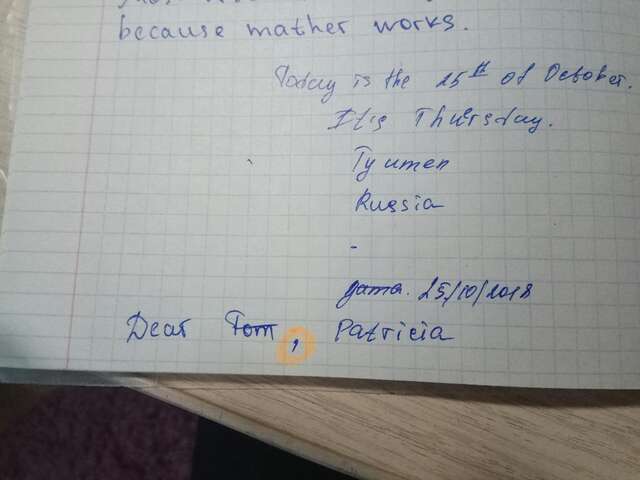 because mather works.
Today is the 25th of October.
It is Thursday.
Tyumen
Russia
-
дата. 25/10/2018
Dear Tom, Patricia